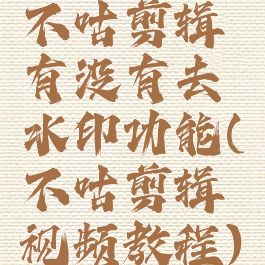 不咕剪辑
有没有去
水印功能(
不咕剪辑
视频教程)